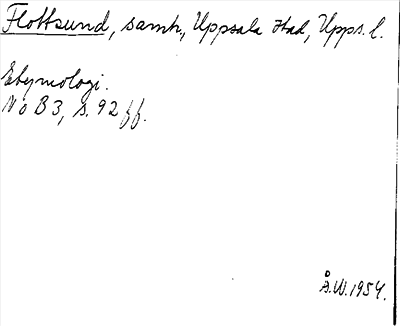 Flottsund, samh, Uppsala stad, Upps. l.
Etymologi.
NoB 3, s. 92 ff.
Å.W. 1954.